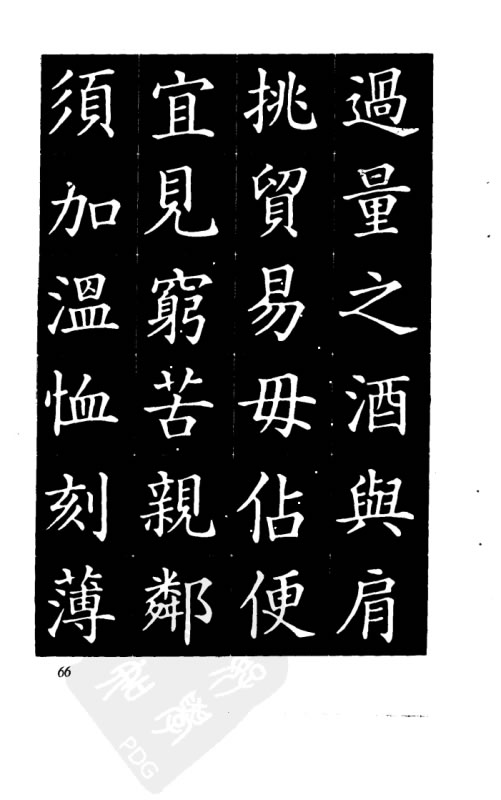 過量之酒與肩
挑貿易毋佔便
宜見窮苦親鄰
須加溫恤刻薄
66
PDG